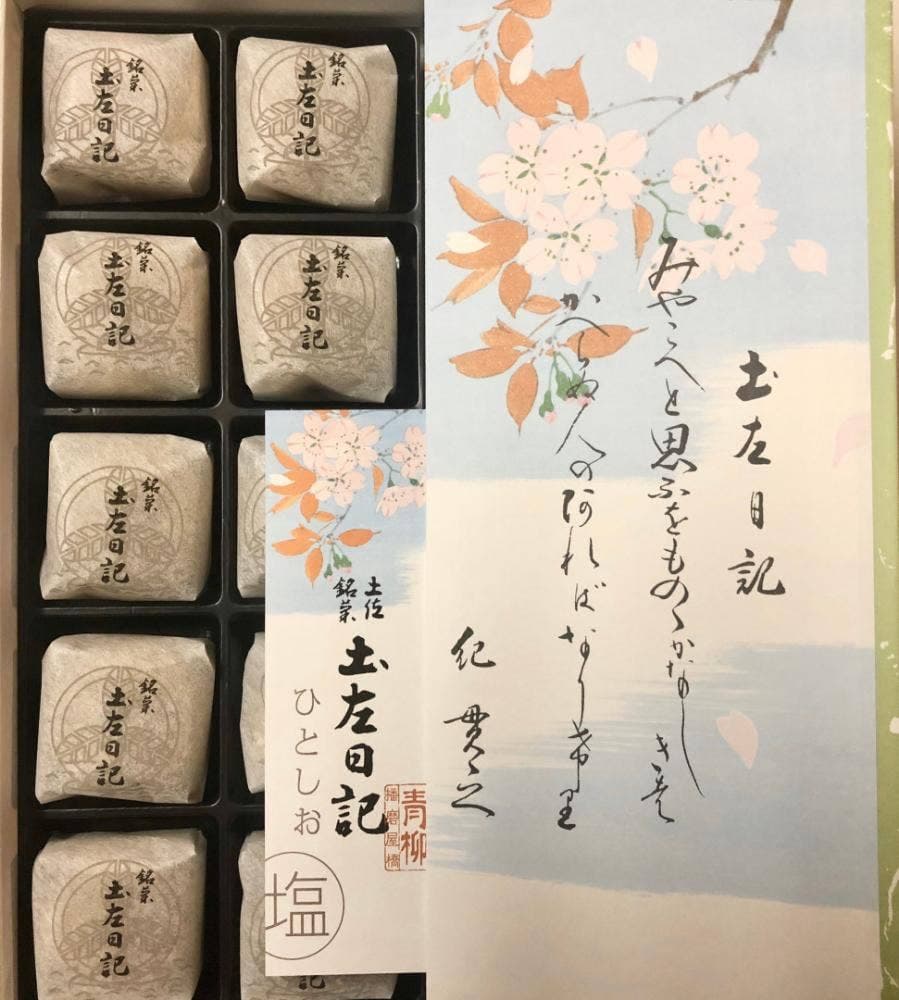 土左日記
みやこへと思ふをものゝかなしきは
かへらぬ人の阿ればなり希里
紀貫之
土佐
銘菓
土左日記
ひとしお
塩
青柳
播磨屋橋
銘菓
土左日記
銘菓
土左日記
銘菓
土左日記
銘菓
土左日記
銘菓
土左日記
銘菓
土左日記
銘菓
土左日記
記